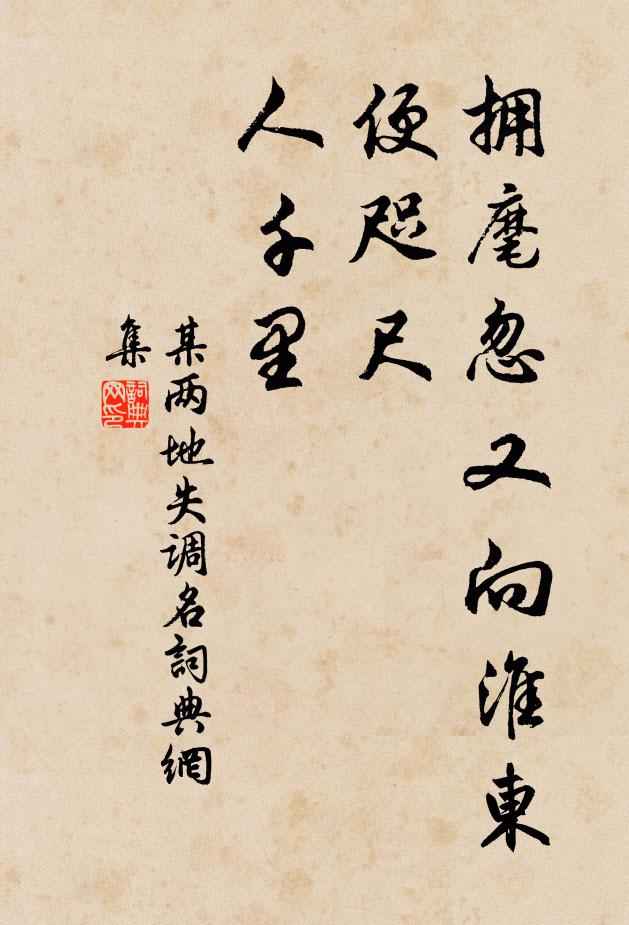 拥麾忽又向淮東
便咫尺
人千里
某两地失调名詞典網
集
詞典网印